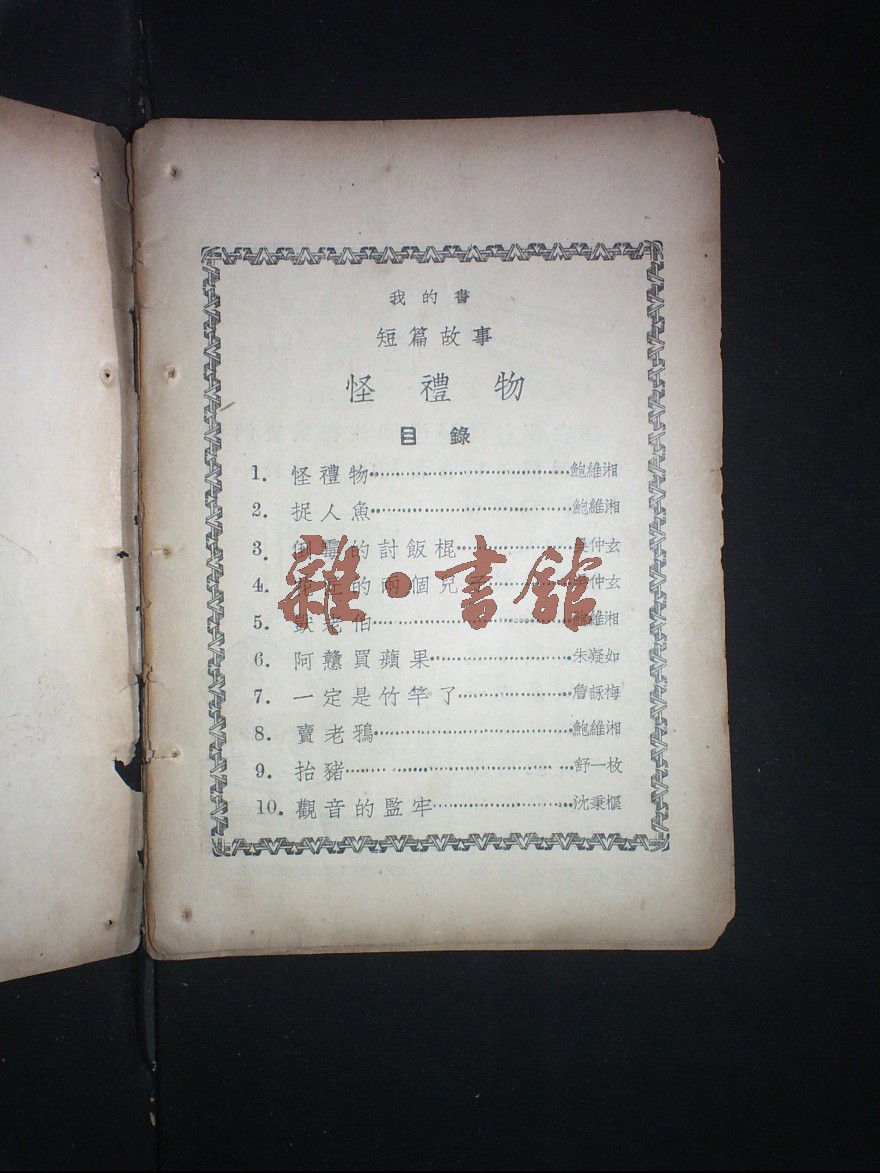 我的書
短篇故事
怪禮物
目錄
1. 怪禮物 鮑維湘
2. 捉人魚 鮑維湘
3. 倒霉的討飯棍 仲玄
4. 的兩個兒子 仲玄
5. 老伯 鮑維湘
6. 阿戇買蘋果 朱凝如
7. 一定是竹竿了 詹詠梅
8. 賣老鴉 鮑維湘
9. 抬豬 舒一枚
10. 觀音的監牢 沈秉樞
雜·書館